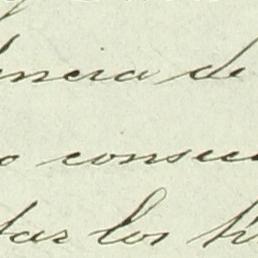 encia de
o consecu
tar los h